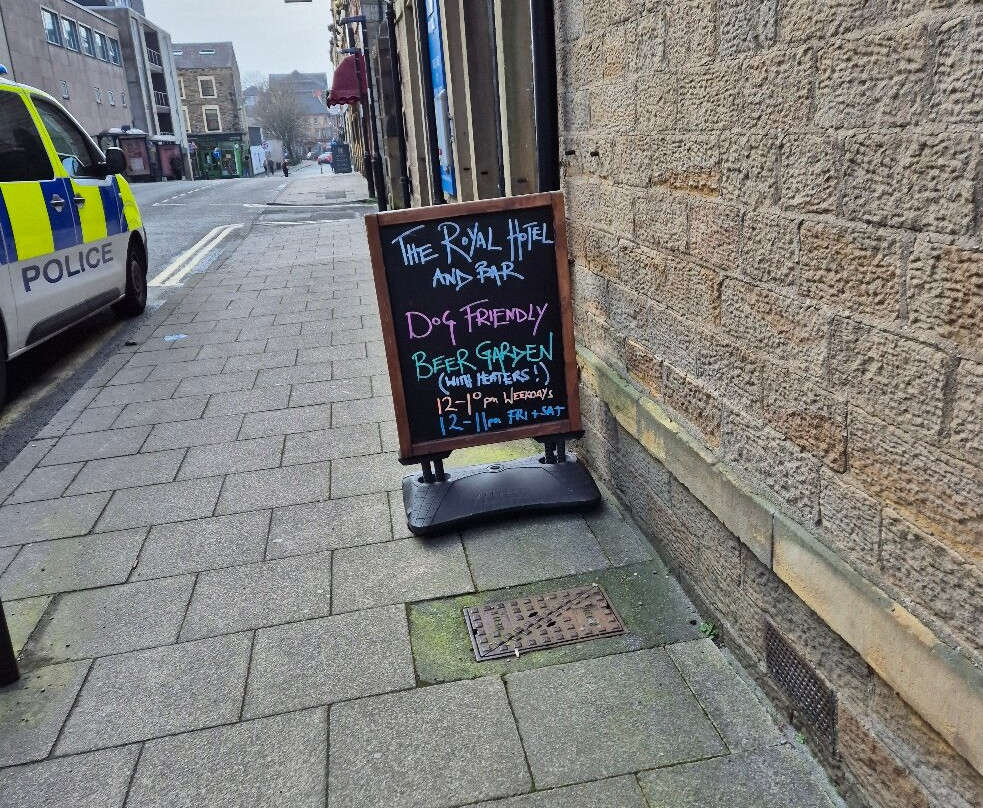 POLICE
THE ROYAL HOTEL
AND BAR
DOG FRIENDLY
BEER GARDEN
(WITH HEATERS!)
12-10pm WEEKDAYS
12-11pm FRI + SAT